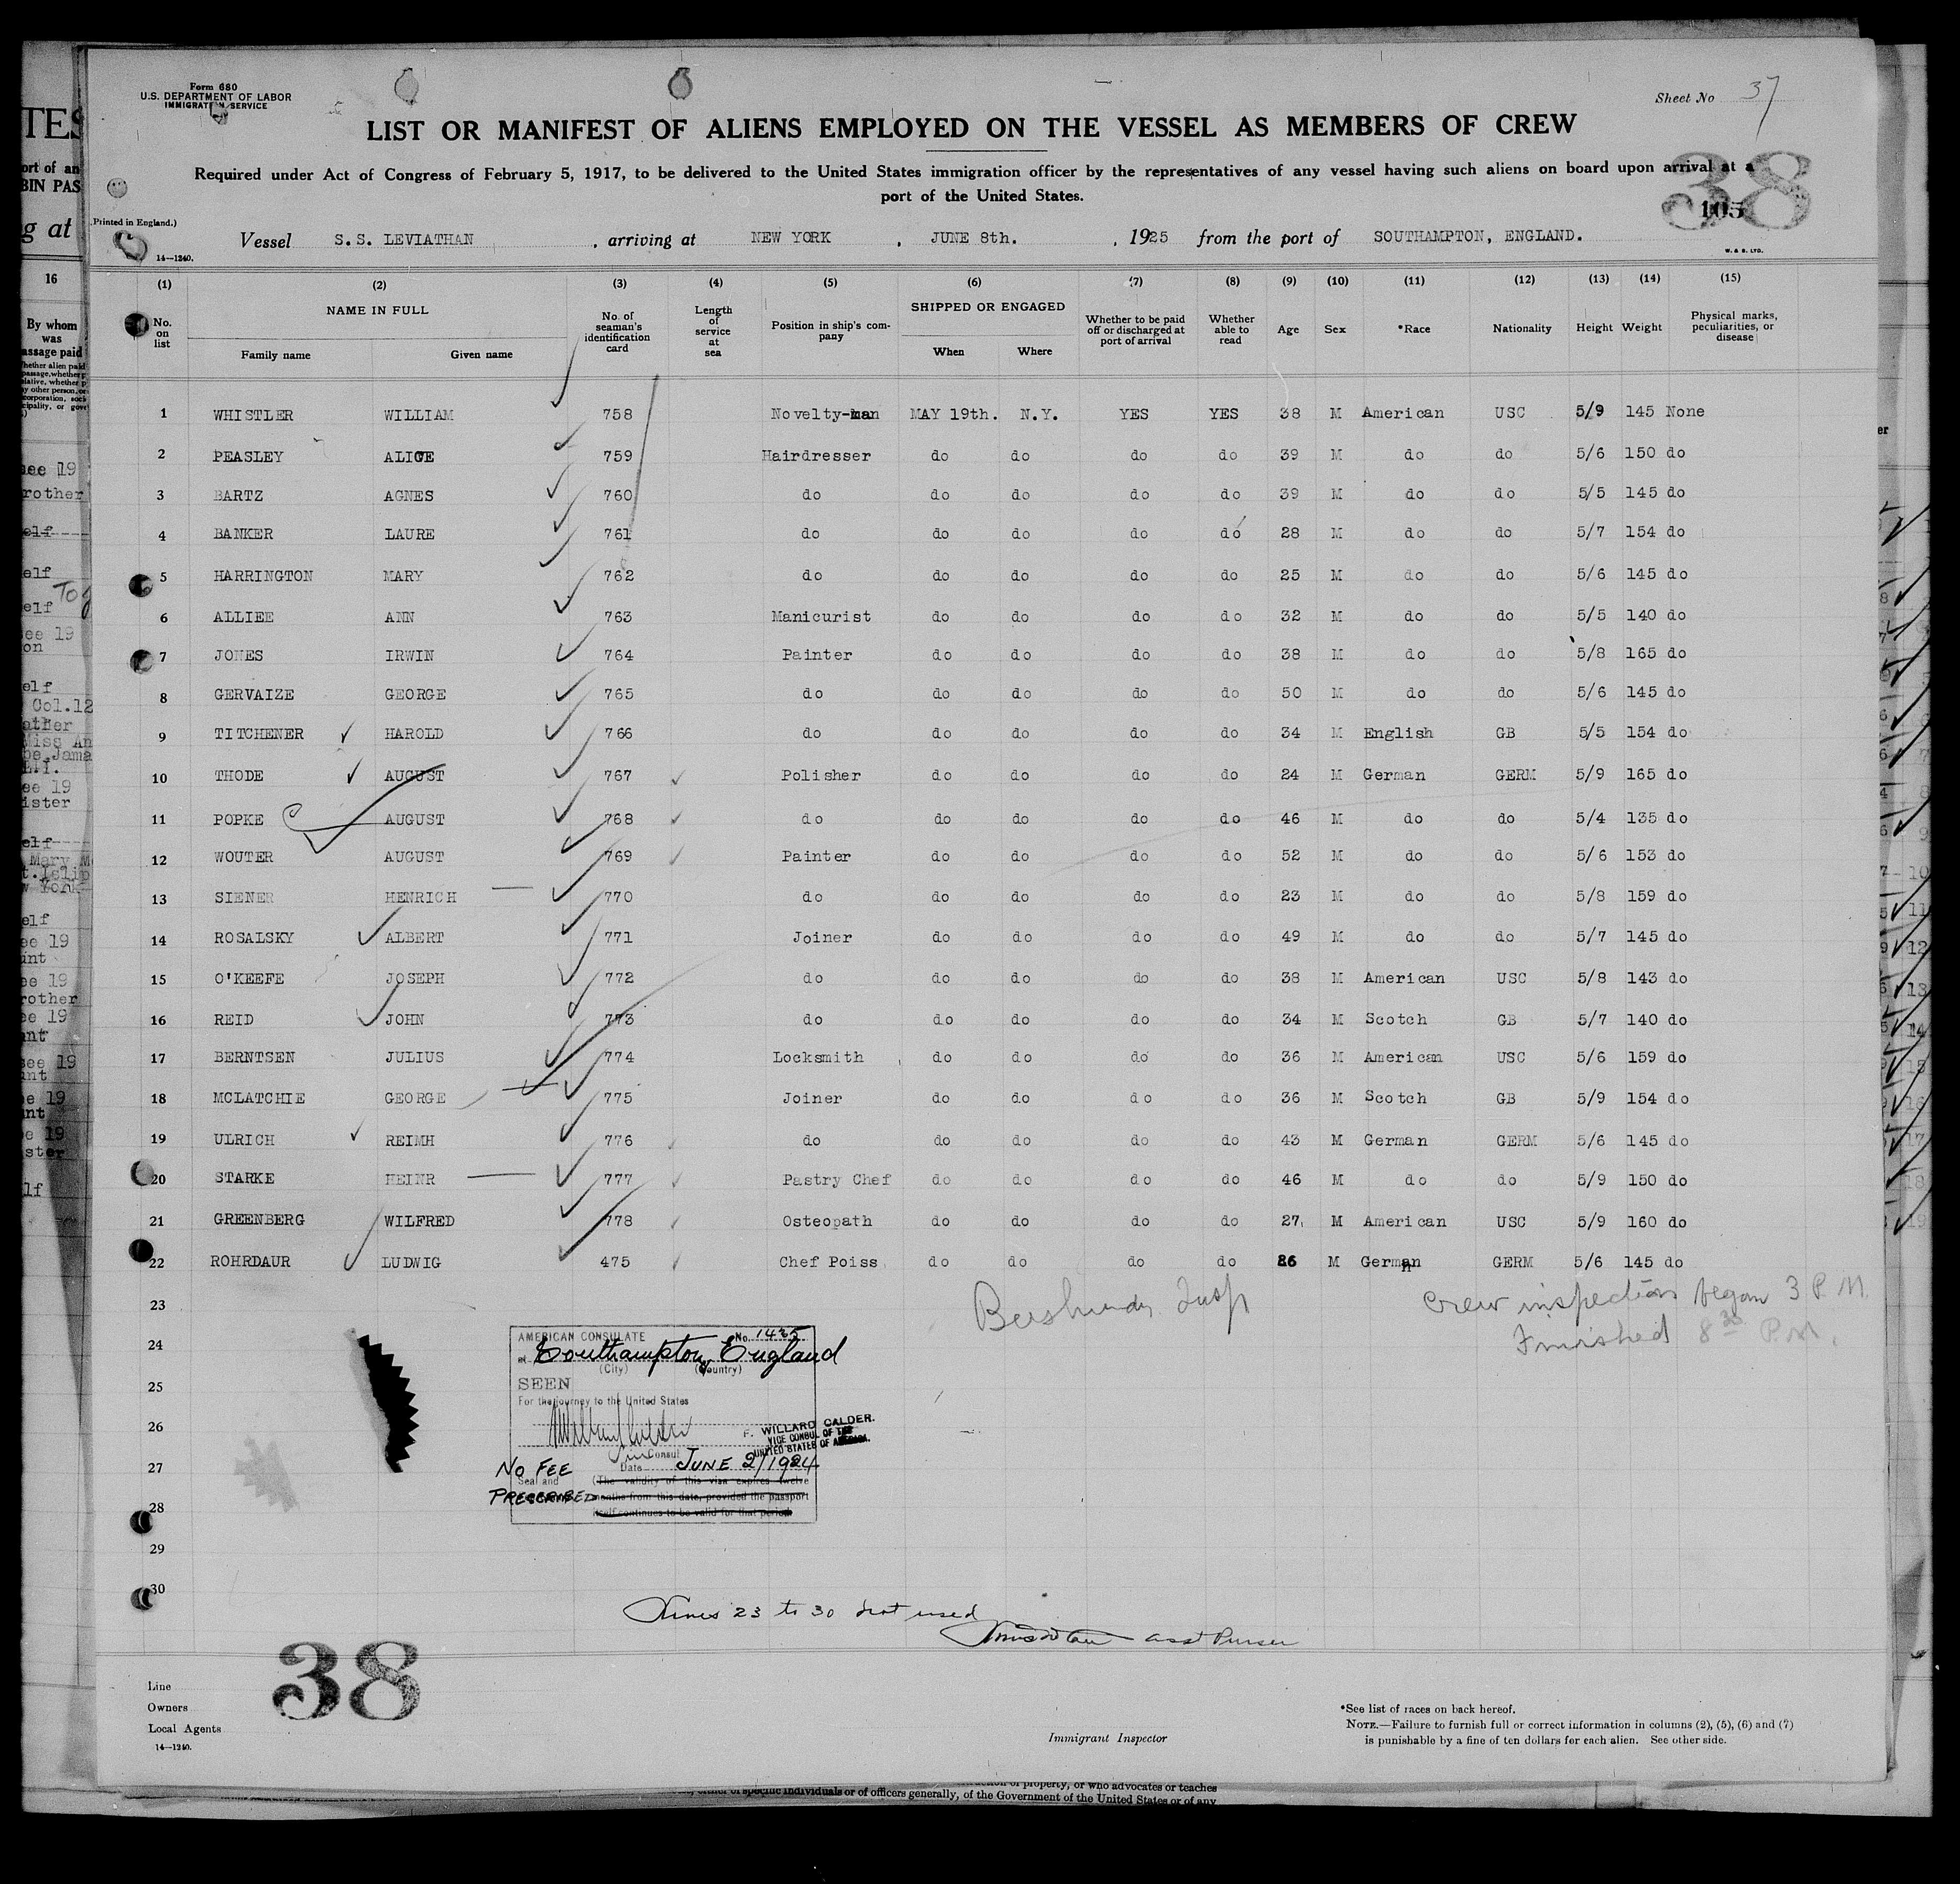 Form 680
U.S. DEPARTMENT OF LABOR
IMMIGRATION SERVICE
Sheet No 37
LIST OR MANIFEST OF ALIENS EMPLOYED ON THE VESSEL AS MEMBERS OF CREW
Required under Act of Congress of February 5, 1917, to be delivered to the United States immigration officer by the representatives of any vessel having such aliens on board upon arrival at a
port of the United States.
38
105
Printed in England.)
Vessel S.S. LEVIATHAN , arriving at NEW YORK , JUNE 8th. , 1925 from the port of SOUTHAMPTON, ENGLAND.
14—1240.
W. & S. LTD.
(1) (2) (3) (4) (5) (6) (7) (8) (9) (10) (11) (12) (13) (14) (15)
No. on list NAME IN FULL Family name Given name No. of seaman's identification card Length of service at sea Position in ship's company SHIPPED OR ENGAGED When Where Whether to be paid off or discharged at port of arrival Whether able to read Age Sex *Race Nationality Height Weight Physical marks, peculiarities, or disease
1 WHISTLER WILLIAM 758 Novelty-man MAY 19th. N.Y. YES YES 38 M American USC 5/9 145 None
2 PEASLEY ALICE 759 Hairdresser do do do do 39 M do do 5/6 150 do
3 BARTZ AGNES 760 do do do do do 39 M do do 5/5 145 do
4 BANKER LAURE 761 do do do do do 28 M do do 5/7 154 do
5 HARRINGTON MARY 762 do do do do do 25 M do do 5/6 145 do
6 ALLIEE ANN 763 Manicurist do do do do 32 M do do 5/5 140 do
7 JONES IRWIN 764 Painter do do do do 38 M do do 5/8 165 do
8 GERVAIZE GEORGE 765 do do do do do 50 M do do 5/6 145 do
9 TITCHENER HAROLD 766 do do do do do 34 M English GB 5/5 154 do
10 THODE AUGUST 767 Polisher do do do do 24 M German GERM 5/9 165 do
11 POPKE AUGUST 768 do do do do do 46 M do do 5/4 135 do
12 WOUTER AUGUST 769 Painter do do do do 52 M do do 5/6 153 do
13 SIENER HENRICH 770 do do do do do 23 M do do 5/8 159 do
14 ROSALSKY ALBERT 771 Joiner do do do do 49 M do do 5/7 145 do
15 O'KEEFE JOSEPH 772 do do do do do 38 M American USC 5/8 143 do
16 REID JOHN 773 do do do do do 34 M Scotch GB 5/7 140 do
17 BERNTSEN JULIUS 774 Locksmith do do do do 36 M American USC 5/6 159 do
18 MCLATCHIE GEORGE 775 Joiner do do do do 36 M Scotch GB 5/9 154 do
19 ULRICH REIMH 776 do do do do do 43 M German GERM 5/6 145 do
20 STARKE HEINR 777 Pastry Chef do do do do 46 M do do 5/9 150 do
21 GREENBERG WILFRED 778 Osteopath do do do do 27 M American USC 5/9 160 do
22 ROHRDAUR LUDWIG 475 Chef Poiss do do do do 26 M German GERM 5/6 145 do
23
Insp
Crew inspection began 3 P.M.
Finished 8 30 P.M.
24
25
26
27
28
29
30
AMERICAN CONSULATE No. 1435
at Southampton, England
(City) (Country)
SEEN
For the journey to the United States
F. WILLARD CALDER.
VICE CONSUL OF THE
UNITED STATES OF AMERICA.
Vice Consul
Date JUNE 2/1924
NO FEE
Seal and
PRESCRIBED
(The validity of this visa expires twelve
months from this date, provided the passport
itself continues to be valid for that period
Lines 23 to 30 not used
asst Purser
38
Line
Owners
Local Agents
14—1240.
Immigrant Inspector
*See list of races on back hereof.
NOTE.—Failure to furnish full or correct information in columns (2), (5), (6) and (7)
is punishable by a fine of ten dollars for each alien. See other side.
of property, or who advocates or teaches
of specific individuals or of officers generally, of the Government of the United States or of any